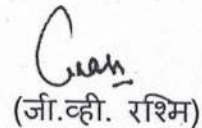 (जी.व्ही. रश्मि)